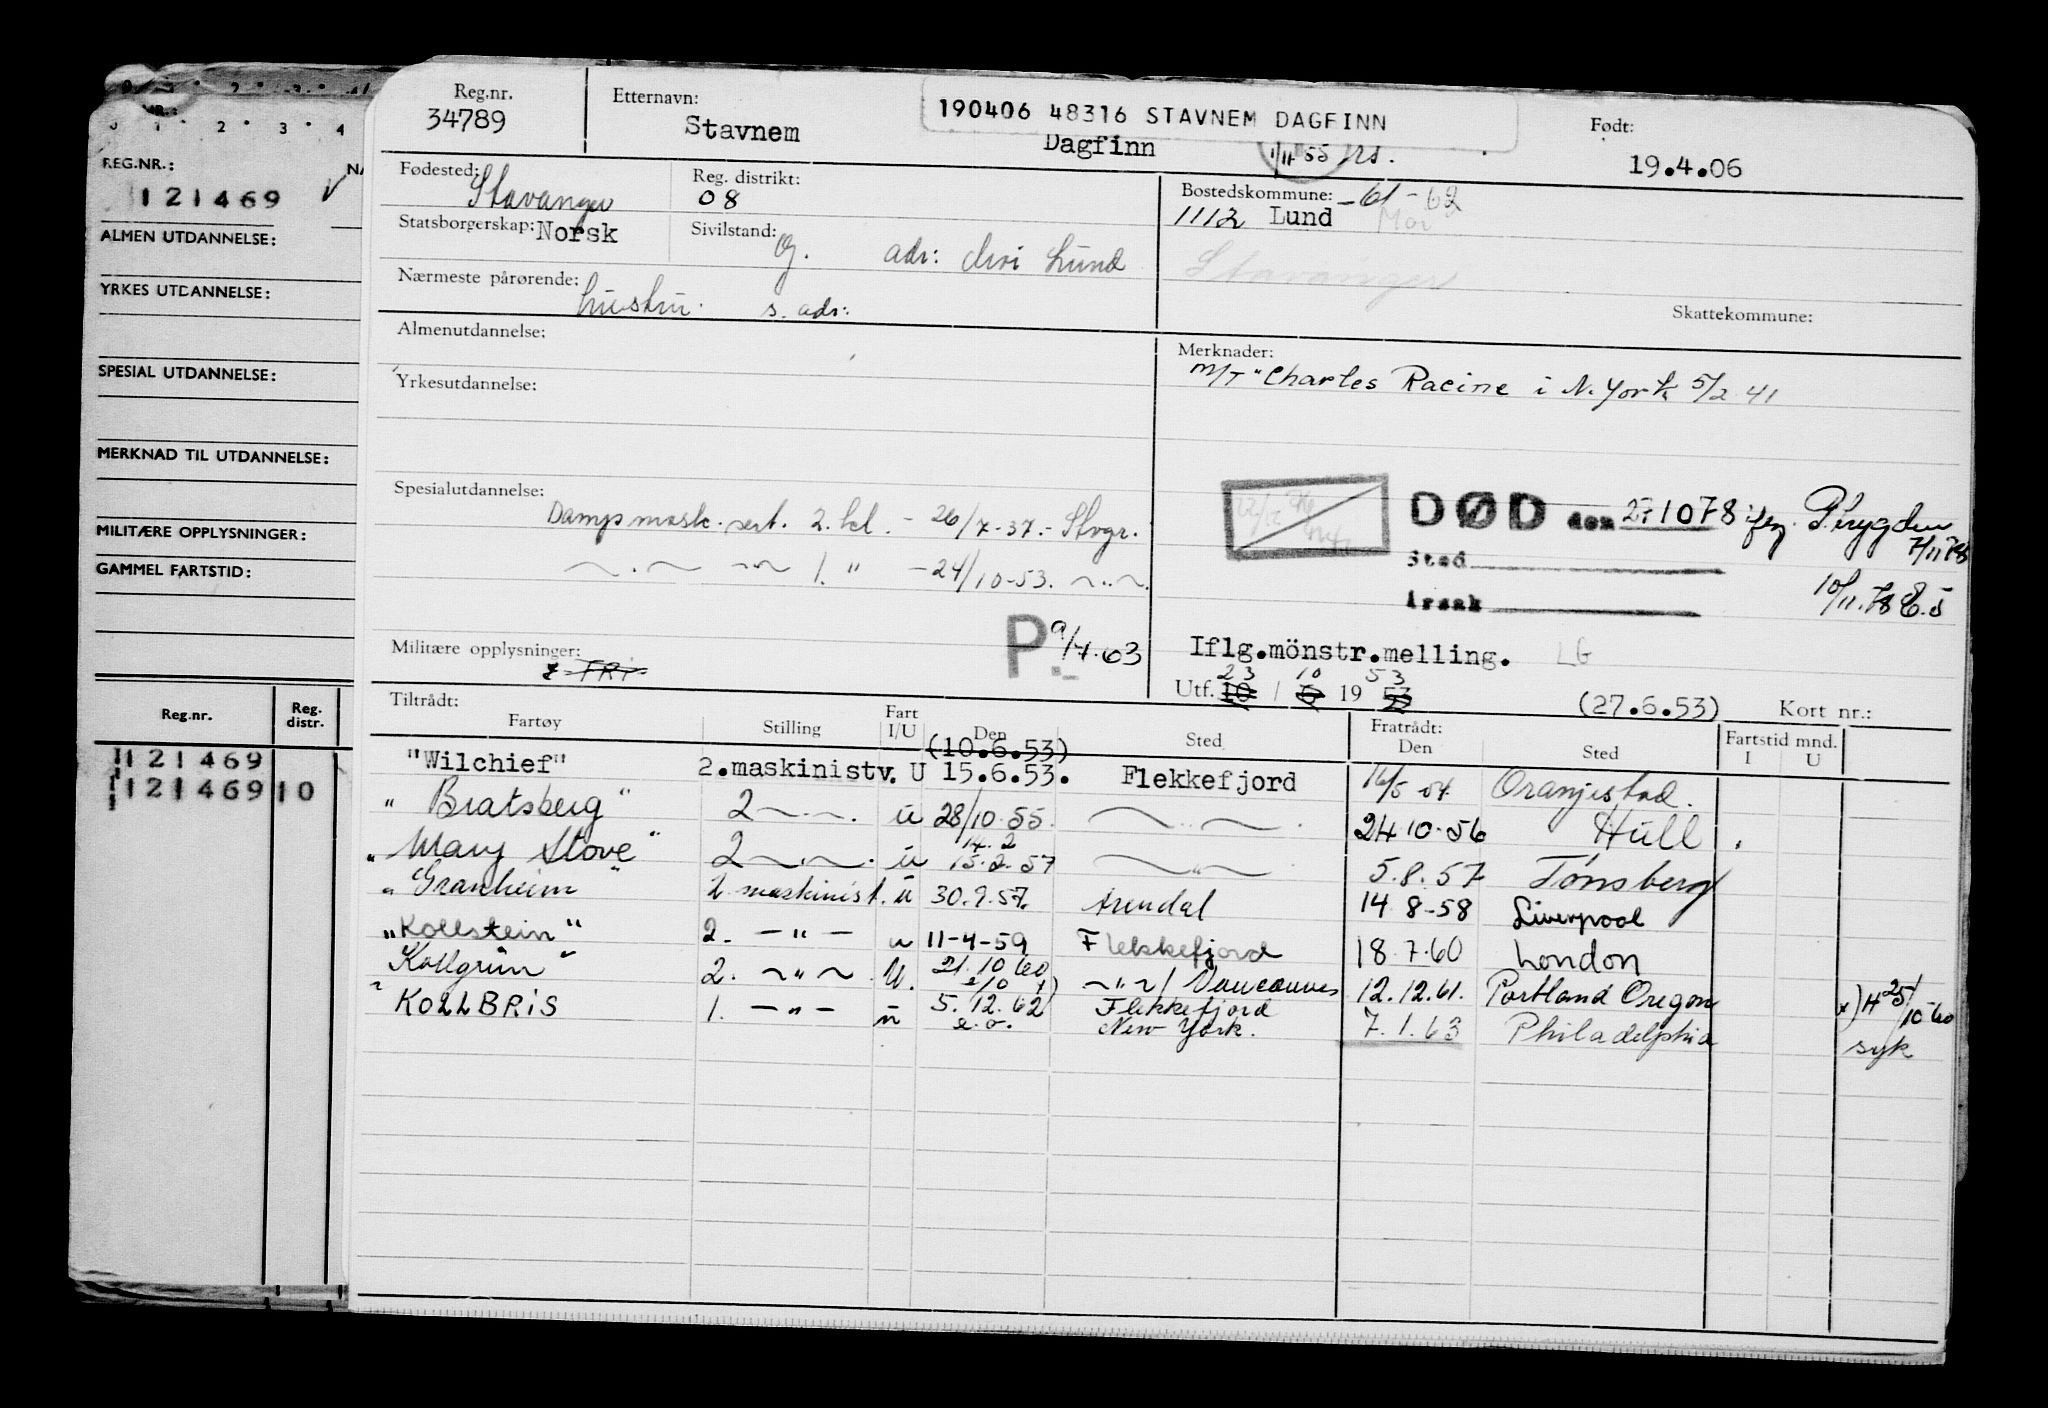 REG.NR.:
121469
ALMEN UTDANNELSE:
YRKES UTDANNELSE:
SPESIAL UTDANNELSE:
MERKNAD TIL UTDANNELSE:
MILITÆRE OPPLYSNINGER:
GAMMEL FARTSTID:
Reg.nr. Reg. distr.
121469
121469 10
Reg.nr. 34789
Etternavn: Stavnem
190406 48316 STAVNEM DAGFINN
Dagfinn
1/11 55
Født: 19.4.06
Fødested: Stavanger
Reg. distrikt: 08
Bostedskommune: -61-62
1112 Lund
Stavanger
Statsborgerskap: Norsk
Sivilstand: G. adr: Moi Lund
Nærmeste pårørende: hustru. s. adr:
Skattekommune:
Almenutdannelse:
Yrkesutdannelse:
Merknader:
M/T "Charles Racine i N. York 5/2 41
Spesialutdannelse:
Dampmask. sert. 2. kl. - 26/7-37.- Stvgr.
1. " -24/10-53.
DØD den 271078
7/11 78
Sted
10/11.78
Årsak
P. 9/7.63
Militære opplysninger:
Iflg.mönstr.melling. LG
23 10 53
Utf. 10 / 6 19 53
(27.6.53)
Kort nr.:
Tiltrådt:
Fartøy Stilling Fart I/U Den Sted
Fratrådt:
Den Sted Fartstid mnd. I U
(10.6.53)
"Wilchief" 2.maskinistv. U 15.6.53. Flekkefjord 16/5 54 Oranjestad.
"Bratsberg" 2 u 28/10.55. 24 10.56 Hull
14.2
"Mary Stove" 2 u 15.2.57 5.8.57 Tønsberg
"Granheim" 2 maskinist. u 30.9.57. Arendal 14 8-58 Liverpool
"Kollstein" 2. - " - u 11-4-59 Flekkefjord 18.7.60 London
"Kollgrim" 2. " U. 21.10 60 " / Vancouver 12.12.61. Portland Oregon x) H 25/10 60
syk
KOLLBRIS 1. - " - u 5.12.62 Flekkefjord 7.1.63 Philadelphia
e.o. New York.